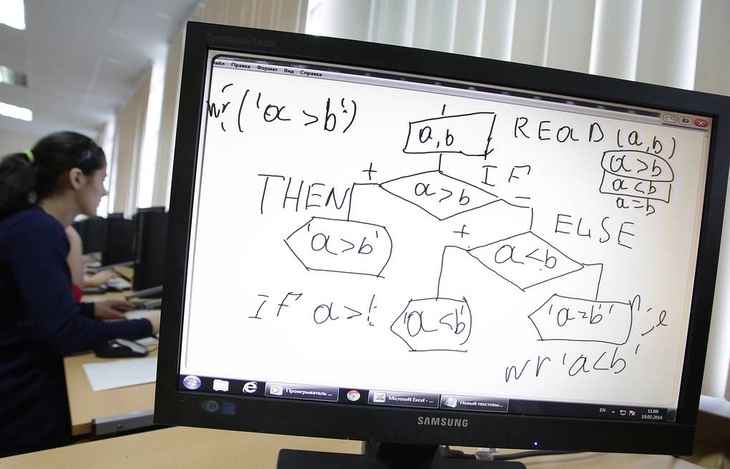 SyncMaster SA200
Файл Правка Формат Вид Справка
wr ('a > b')
a, b
READ (a,b)
a > b
a < b
a = b
+
IF
THEN
a > b
-
'a > b'
+
ELSE
a < b
IF a >
'a < b'
'a = b'
wr 'a < b'
Проигрыватель
Microsoft Excel -
Новый текстовы...
EN
11:09
19.02.2014
SAMSUNG